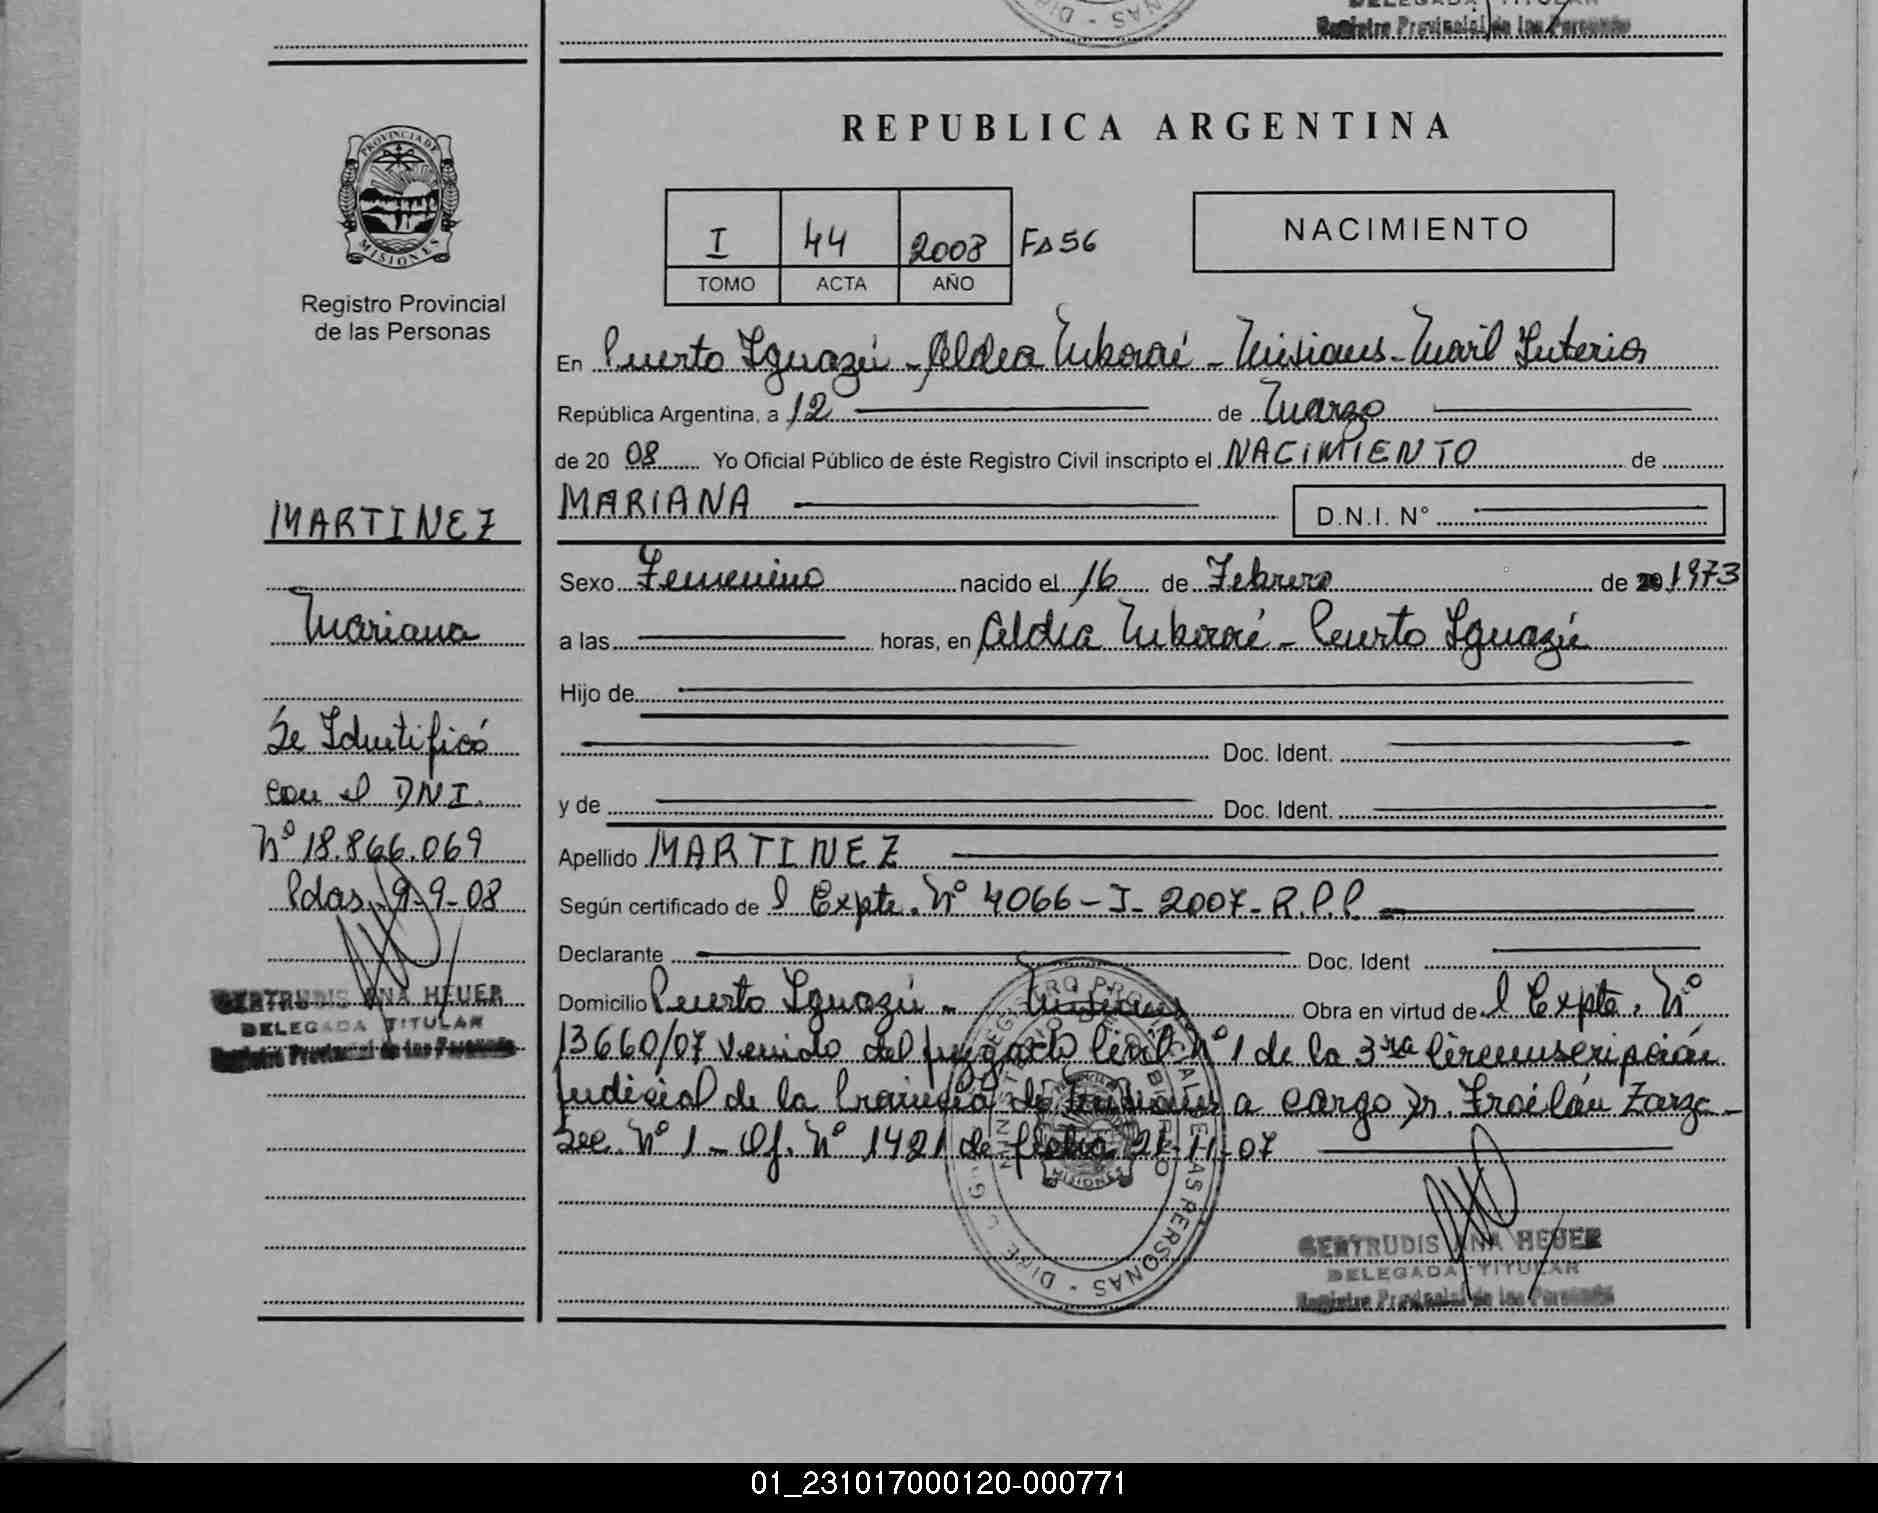 DELEGADA TITULAR
Registro Provincial de las Personas
REPUBLICA ARGENTINA
PROVINCIA DE
MISIONES
Registro Provincial
de las Personas
I 44 2008 Fº 56
TOMO ACTA AÑO
NACIMIENTO
En Puerto Iguazú - Aldea Mborœ́ - Misiones - Maril Interior
República Argentina, a 12 de Marzo
de 20 08 Yo Oficial Público de éste Registro Civil inscripto el NACIMIENTO de
MARIANA D.N.I. N°
Sexo Femenino nacido el 16 de Febrero de 20 1973
a las horas, en Aldea Puerto Iguazú
Hijo de
Doc. Ident.
y de Doc. Ident.
Apellido MARTINEZ
Según certificado de l Expte. Nº 4066-I-2007-R.P.P.
Declarante Doc. Ident
Domicilio Puerto Iguazú - Misiones Obra en virtud de l Expte. Nº
13660/07 venido del Juzgado Civil Nº 1 de la 3ra Circunscripción
Judicial de la Provincia de Misiones a cargo Dr. Froilán Zarza -
Sec. Nº 1 - Of. Nº 1421 de fecha 21-11-07
GERTRUDIS ANA HEUER
DELEGADA TITULAR
Registro Provincial de las Personas
MARTINEZ
Mariana
Se Identificó
con el DNI.
Nº 18.866.069
Pdas. 9-9-08
GERTRUDIS ANA HEUER
DELEGADA TITULAR
Registro Provincial de las Personas
01_231017000120-000771